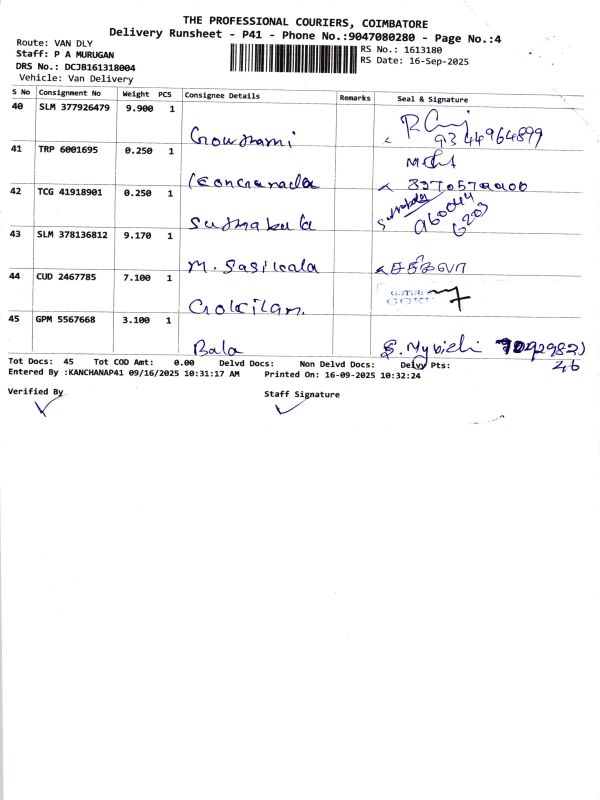 THE PROFESSIONAL COURIERS, COIMBATORE
Delivery Runsheet - P41 - Phone No.:9047080280 - Page No.:4
Route: VAN DLY
Staff: P A MURUGAN
DRS No.: DCJB161318004
Vehicle: Van Delivery
RS No.: 1613180
RS Date: 16-Sep-2025
S No Consignment No Weight PCS Consignee Details Remarks Seal & Signature
40 SLM 377926479 9.900 1
Gowthami 9344964899
41 TRP 6001695 0.250 1
42 TCG 41918901 0.250 1
43 SLM 378136812 9.170 1
M. Sasikala சசிகலா
44 CUD 2467785 7.100 1
Gokilam.
45 GPM 5567668 3.100 1
Bala
Tot Docs: 45 Tot COD Amt: 0.00 Delvd Docs: Non Delvd Docs: Delvy Pts:
Entered By :KANCHANAP41 09/16/2025 10:31:17 AM Printed On: 16-09-2025 10:32:24
Verified By Staff Signature